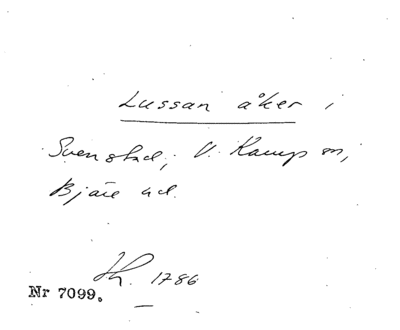 Lussan åker i
Svenstad, V. Karup sn,
Bjäre hd.
Lh. 1786
Nr 7099.